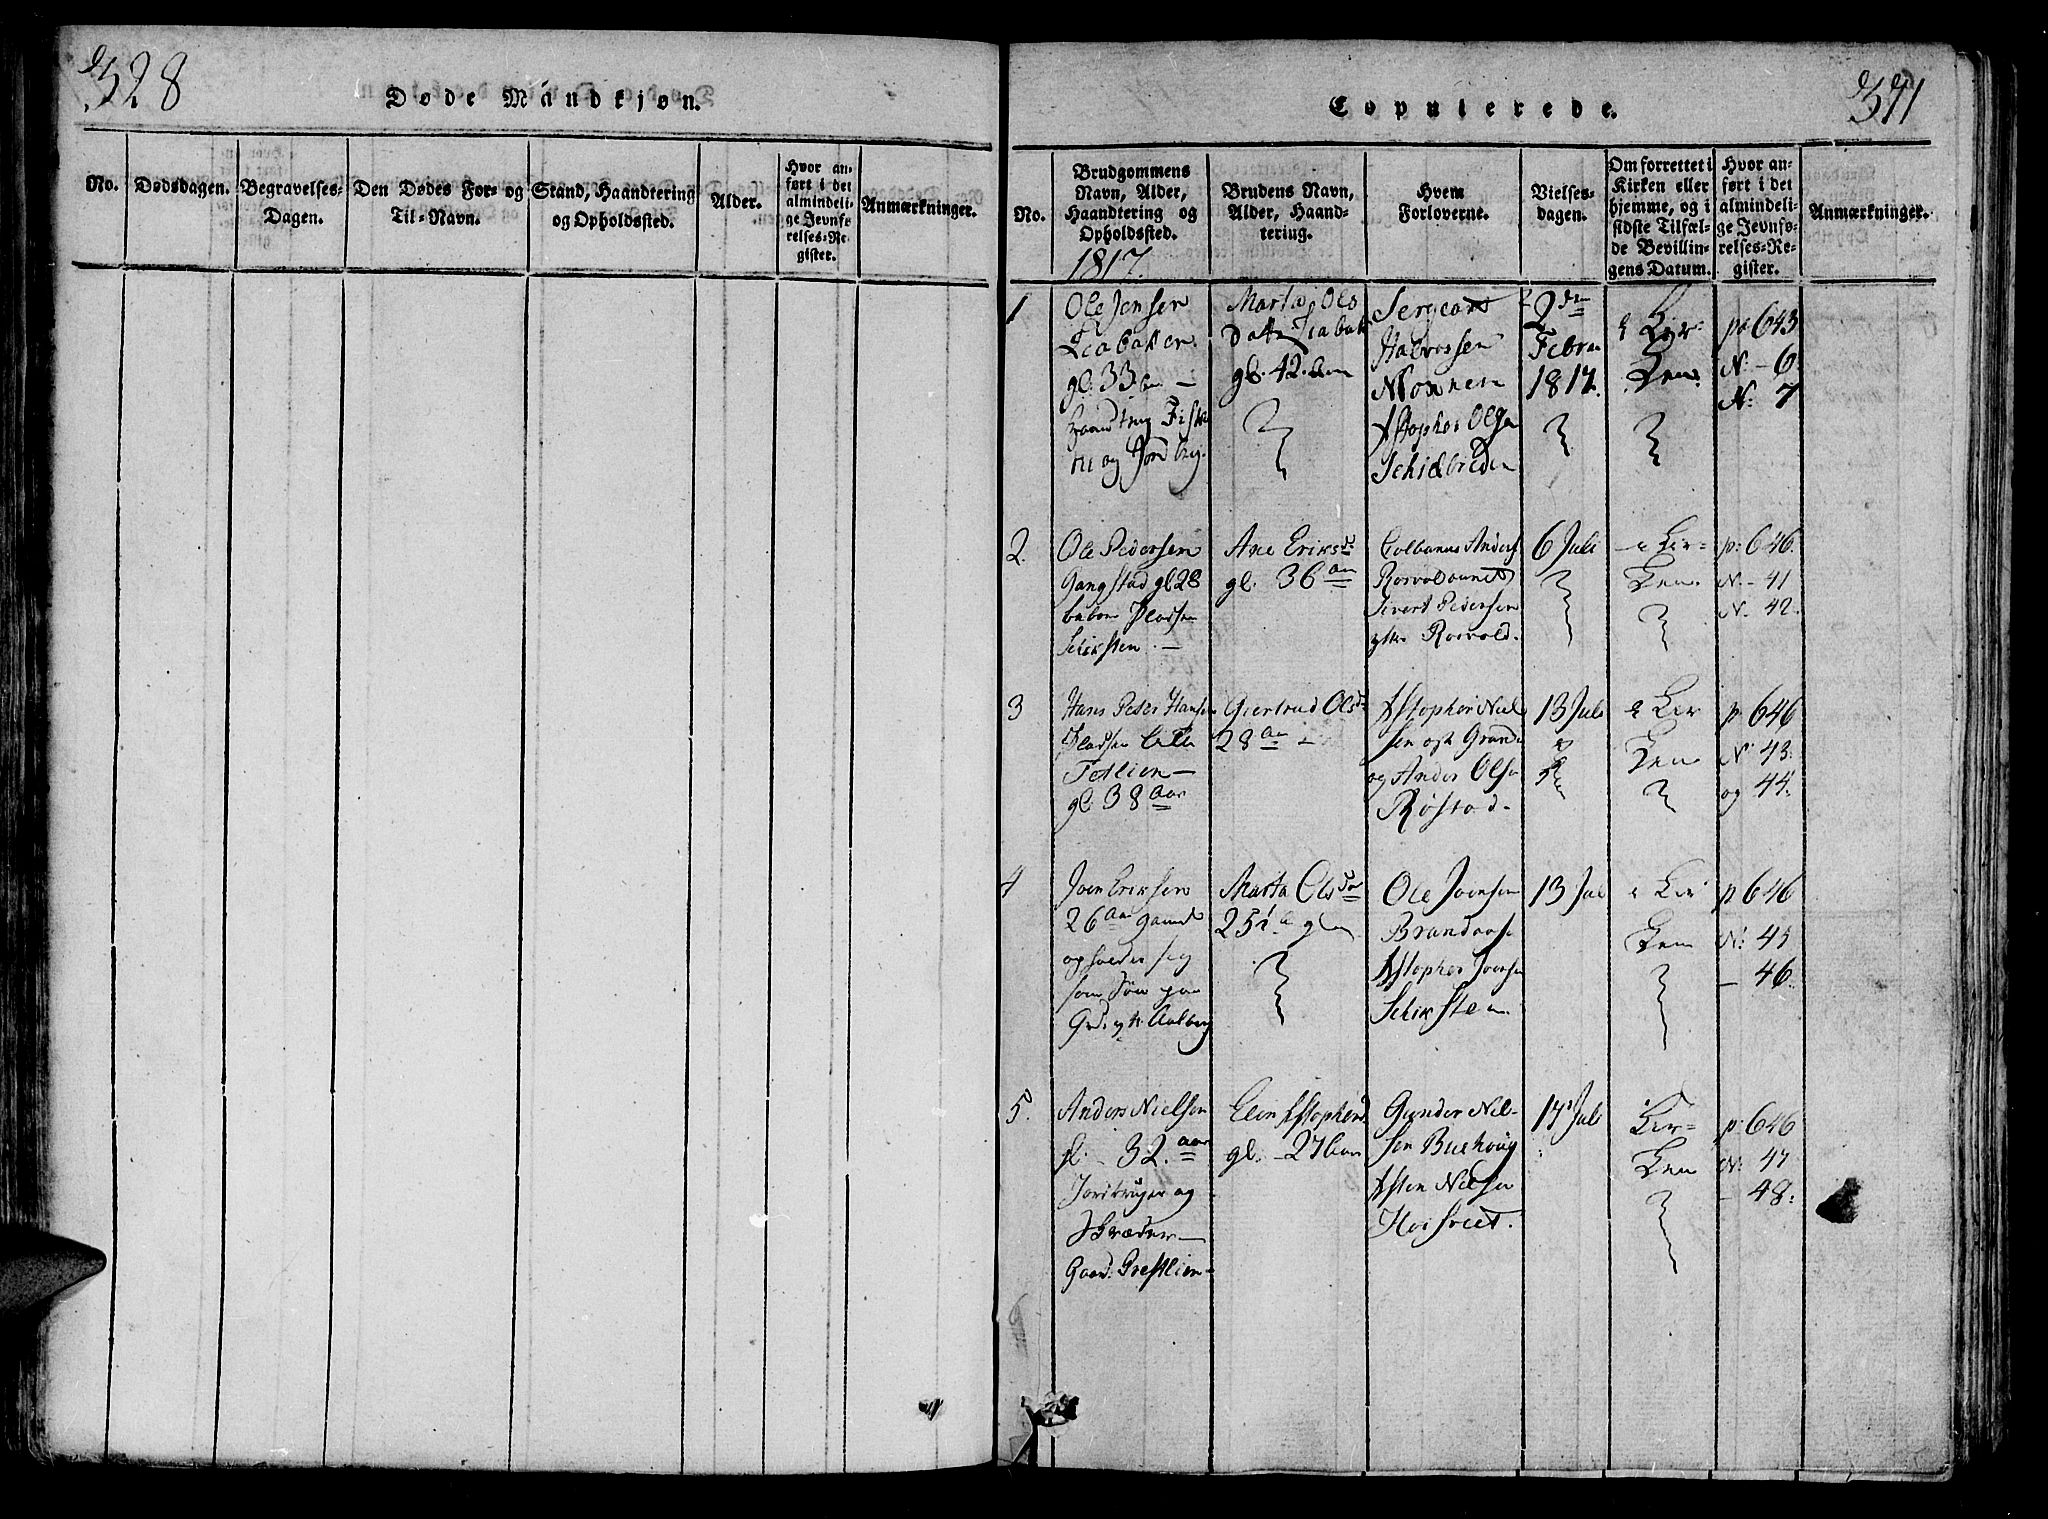 328
Døde Mandkjøn.
No.
Dødsdagen.
Begravelses-
Dagen.
Den Dødes For- og
Til-Navn.
Stand, Haandtering
og Opholdssted.
Alder.
Hvor an-
ført i det
almindeli-
ge Jevnfø-
relses-Re-
gister.
Anmærkninger.
Copulerede.
341
No.
Brudgommens
Navn, Alder,
Haandtering og
Opholdssted.
1817.
Brudens Navn,
Alder, Haand-
tering.
Hvem
Forloverne.
Vielses-
dagen.
Om forrettet i
Kirken eller
hjemme, og i
sidste Tilfæl-
de Bevillin-
gens Datum.
Hvor an-
ført i det
almindeli-
ge Jevnfø-
relses-Re-
gister.
Anmærkninger.
1
Ole Jensen
gl. 33
og Jordbrug.
Marta Ols
gl. 42. Aar
Sergeant
Halvorsen
Moxnes
Olsen
2den
Febru
1817.
i Kir-
ken.
pa 643
N. - 6
N. 7
2.
Ole Pedersen
Gangstad gl 28
Pladsen
Schiksten. -
Ane Eriksd
gl. 36 aar
Colbanus Anders
Rosvoldaunet
Sivert Pedersen
Rosvold.
6 Juli
i Kir-
ken.
p: 646.
N. - 41
N. 42.
3
Hans Peter Hansen
Pladsen
gl. 38 Aar
Giertrud Olsd
28 aar -
Xstopher Niel
sen
og Anders Olsen
Røstad -
13 Juli
i Kir
ken
p 646
N. 43.
og 44.
4
Joen Eriksen
26 Aar gammel
opholder sig
som Søn paa
Aalberg
Marta Olsd
25
Ole Joensen
Brandaas
Xstopher Joensen
Schiksten.
13 Jul
i Kir
ken
p 646
N: 45
- 46.
5.
Anders Nielsen
gl. - 32. aar
Jordbruger og
Skræder -
Gaard. Grestlien -
Elen Xstophersd
gl. - 27 Aar
Gunder Niel-
sen Buehoug
Xsten Nielsen
17 Juli
i Kir-
ken
p: 646
N: 47
- 48.